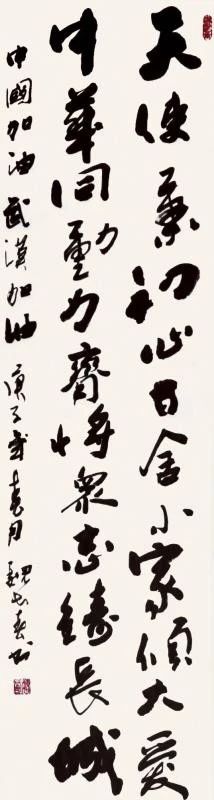 天使秉初心甘舍小家傾大愛
中華同動力齊將衆志鑄長城
中國加油武漢加油 庚子歲 月魏 書